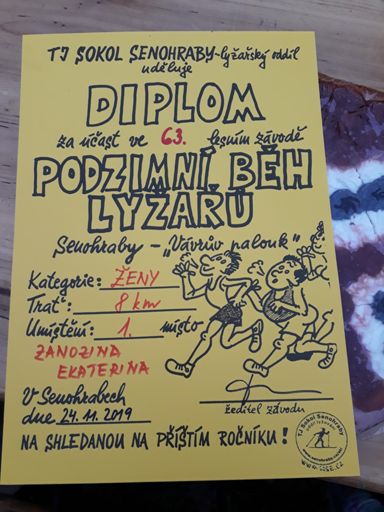 TJ SOKOL SENOHRABY-lyžařský oddíl
uděluje
DIPLOM
za účast ve 63. lesním závodě
PODZIMNÍ BĚH
LYŽAŘŮ
Senohraby - „Vávrův palouk"
Kategorie: ŽENY
Trať: 8 km
Umístění: 1. místo
ZANOZINA
EKATERINA
V Senohrabech
dne 24.11.2019
ředitel závodu
NA SHLEDANOU NA PŘÍŠTÍM ROČNÍKU!
TJ Sokol Senohraby